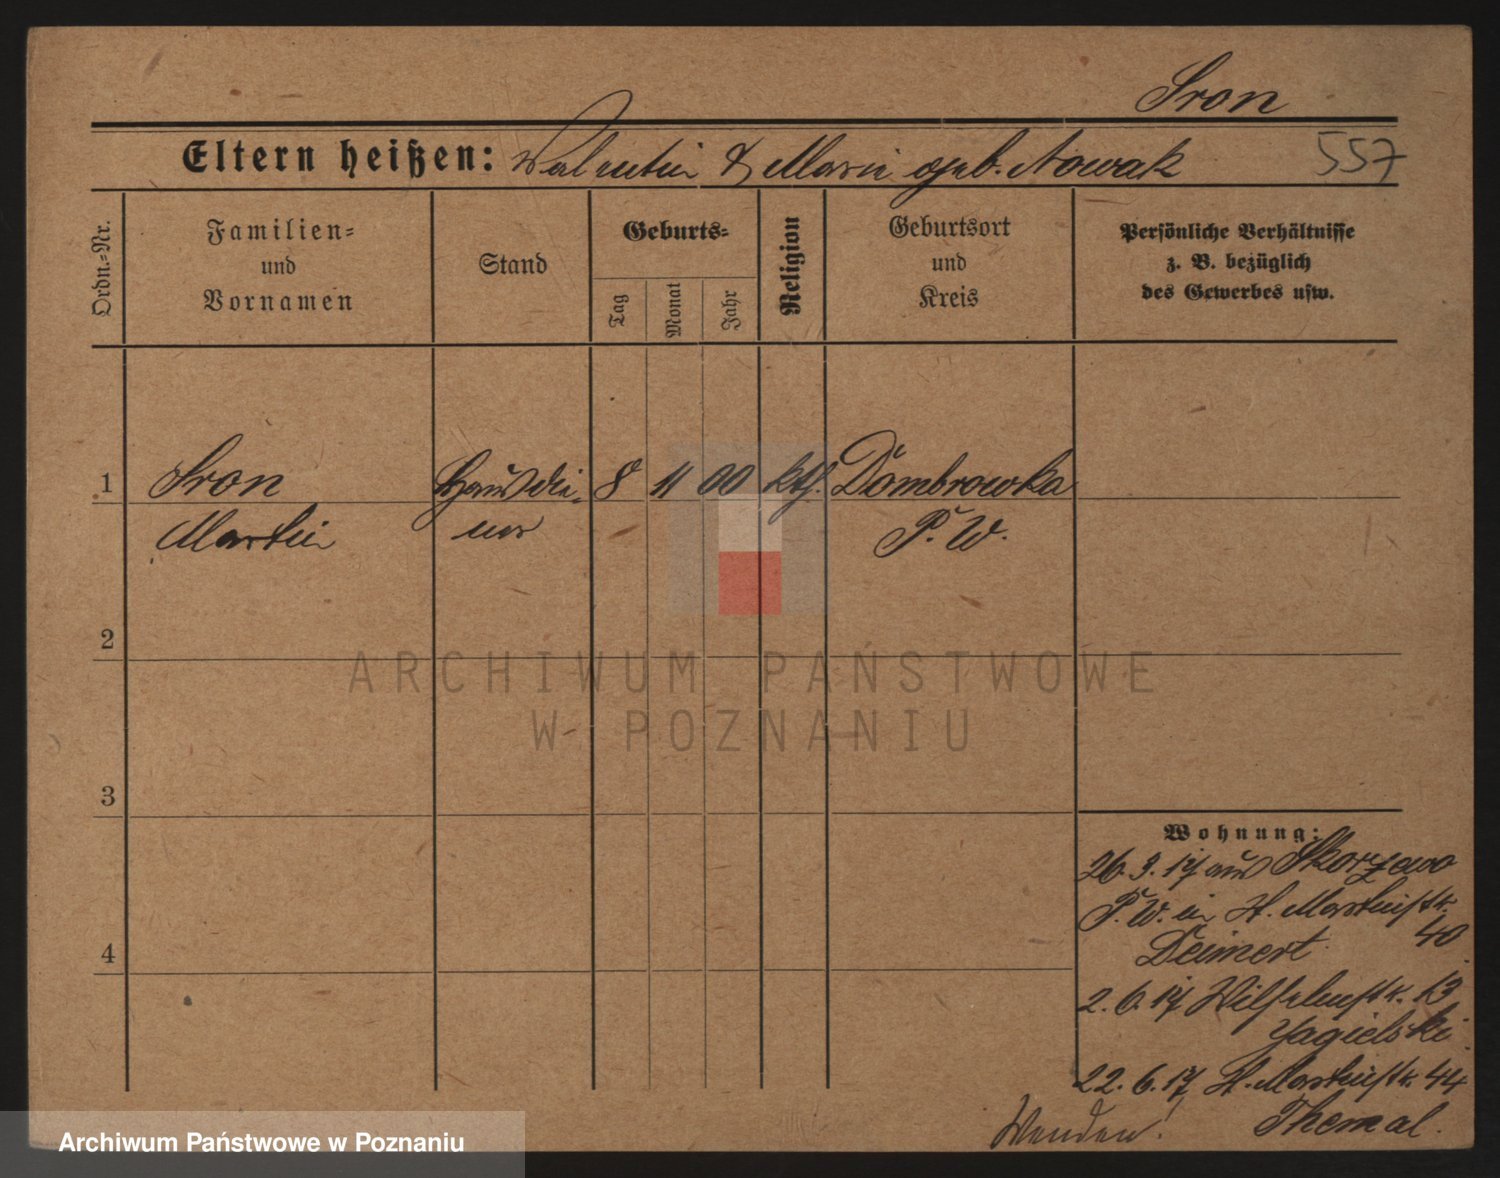 Sron
Eltern heißen: Valentin & Marie geb. Nowak 557
Ordn.-Nr.
Familien-
und
Vornamen
Stand
Geburts-
Tag
Monat
Jahr
Religion
Geburtsort
und
Kreis
Persönliche Verhältnisse
z. B. bezüglich
des Gewerbes usw.
1 Sron Hausdie- 8 11 00 kth. Dombrowka
Martin ner P. W.
2
3
4
Wohnung:
26.3.17 aus Skorzewo
P. W. in St. Martinstr.
40
Deimert
2.6.17 Wilhelmstr. 13
Jagielski
22.6.17 St. Martinstr. 44
Themal.
Wenden!
ARCHIWUM PAŃSTWOWE
W POZNANIU
Archiwum Państwowe w Poznaniu